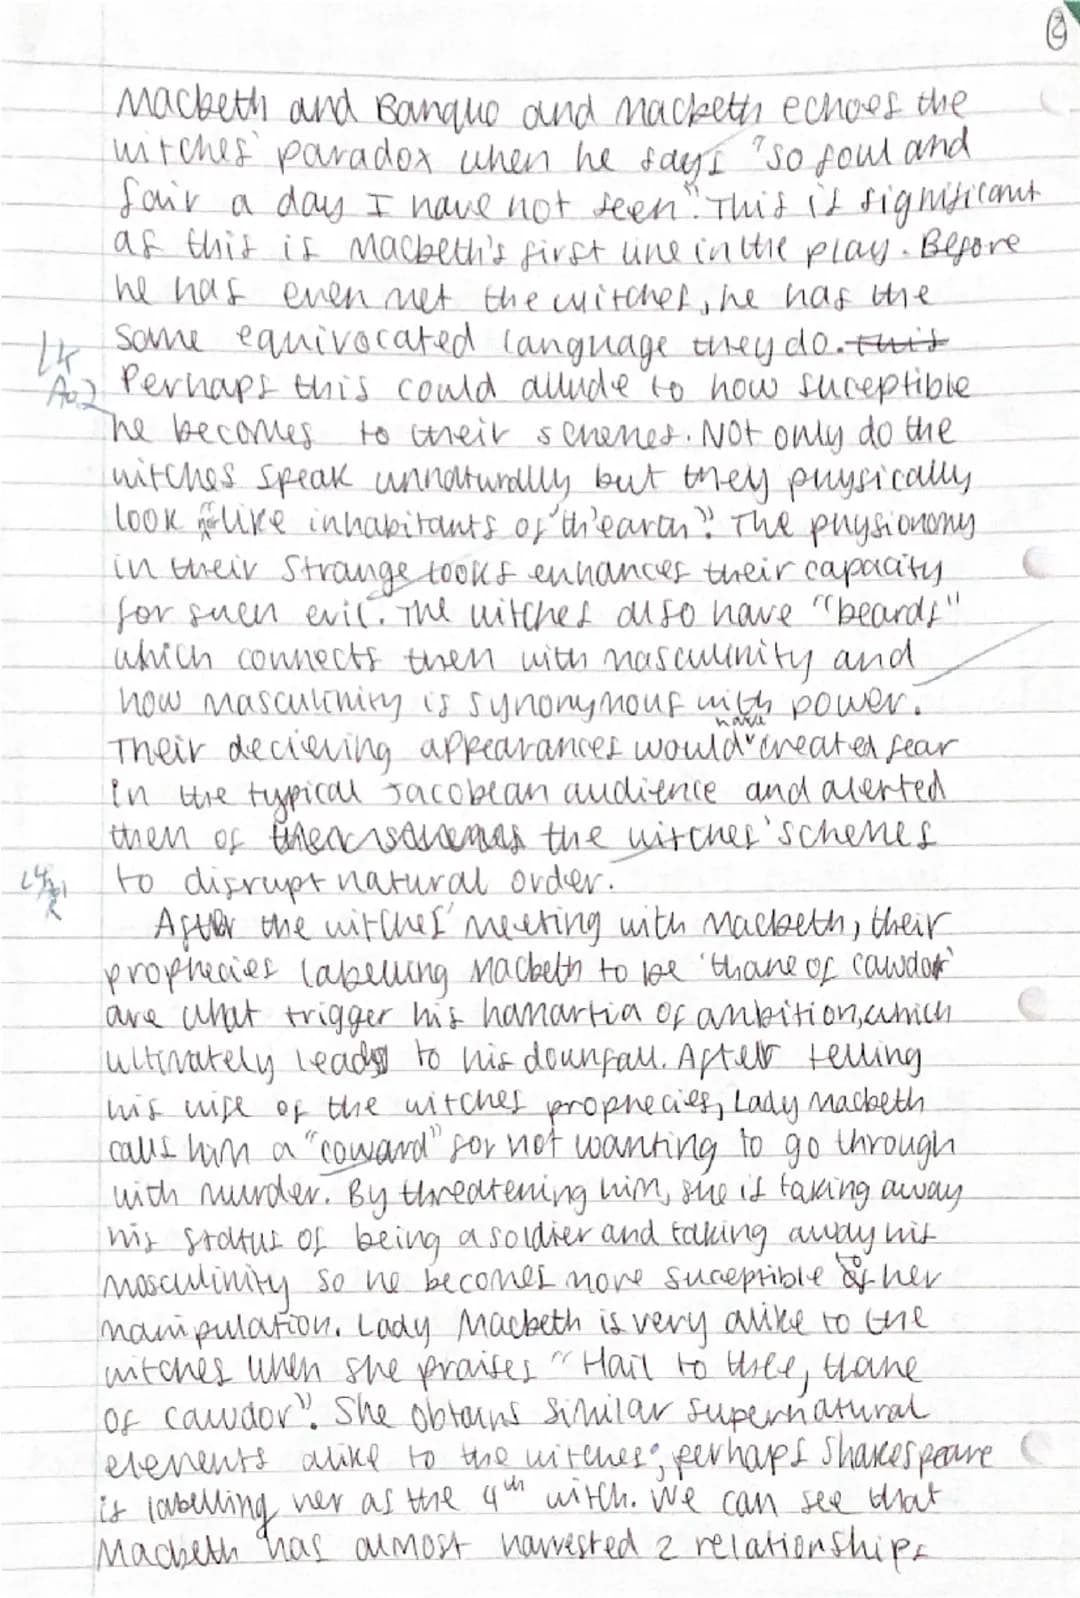 2
Macbeth and Banquo and Macbeth echoes the
witches' paradox when he says "so foul and
fair a day I have not seen". This is significant
as this is Macbeth's first line in the play. Before
he has even met the witches, he has the
same equivocated language they do. This
L4
AO2
Perhaps this could allude to how suceptible
he becomes to their schemes. Not only do the
witches speak unnaturally but they physically
look not like inhabitants of "th'earth". The physionomy
in their strange looks enhances their capacity
for such evil. The witches also have "beards"
which connects them with masculinity and
how masculinity is synonymous with power.
Their decieving appearances would have created fear
in the typical Jacobean audience and alerted
them of the witches' schemes
L4
to disrupt natural order.
After the witches' meeting with Macbeth, their
prophecies labelling Macbeth to be 'thane of cawdor'
are what trigger his hamartia of ambition, which
ultimately leads to his downfall. After telling
his wife of the witches prophecies, Lady Macbeth
calls him a "coward" for not wanting to go through
with murder. By threatening him, she is taking away
his status of being a soldier and taking away his
masculinity so he becomes more suceptible to her
manipulation. Lady Macbeth is very alike to the
witches when she praises "Hail to thee, thane
of cawdor". She obtains similar supernatural
elements alike to the witches; perhaps Shakespeare
is labelling her as the 4th witch. We can see that
Macbeth has almost harvested 2 relationships